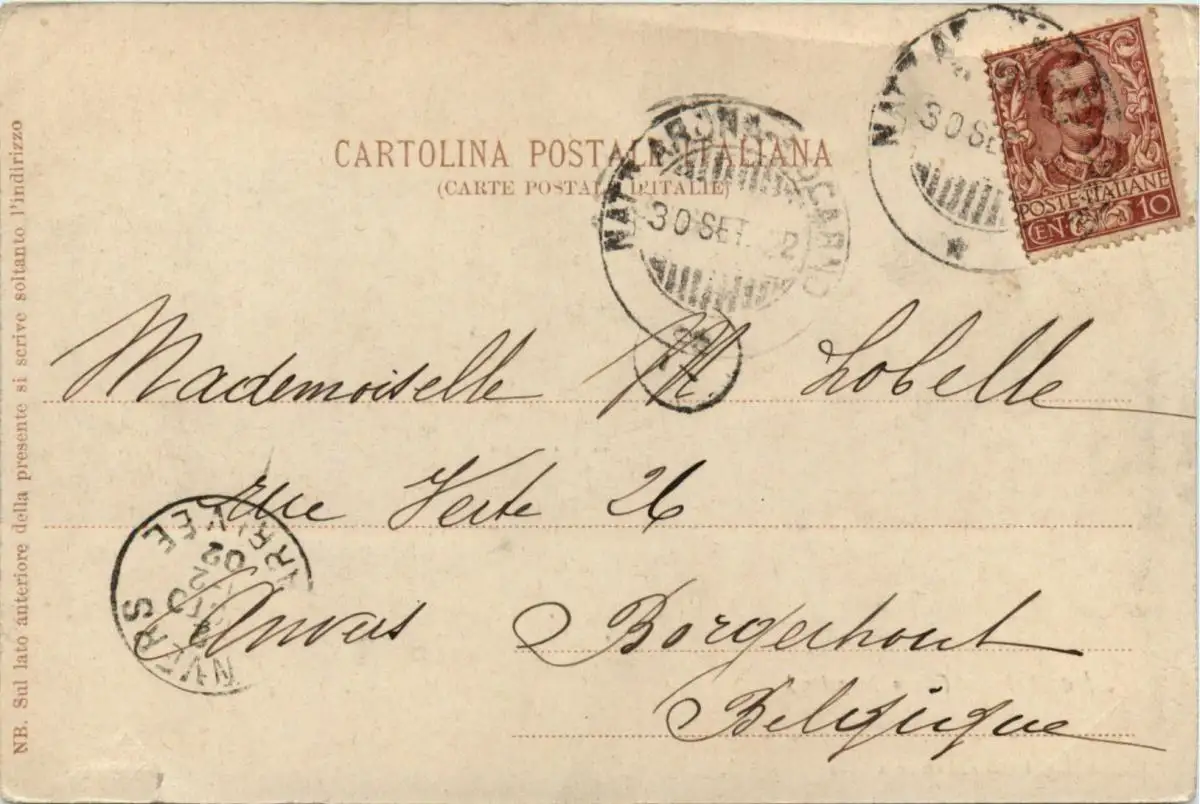 CARTOLINA POSTALE ITALIANA
(CARTE POSTALE D'ITALIE)
NATT ARONA-LOCARNO
30 SET. 02
NATT AR
30 SET
POSTE·ITALIANE
CEN. 10
Mademoiselle M. Lobelle
rue Verte 26
Anvers Borgerhout
Belgique
ANVERS
ARRIVÉE
02
NB. Sul lato anteriore della presente si scrive soltanto l'indirizzo